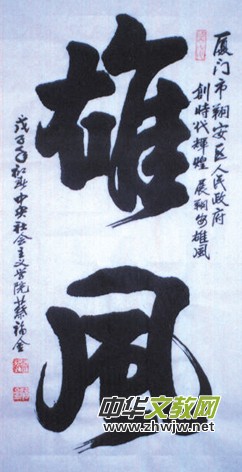 厦门市翔安区人民政府
創時代輝煌 展翔安雄風
雄風
戊子年初秋 中央社会主义学院 蘇福金
中华文教网
www.zhwjw.net